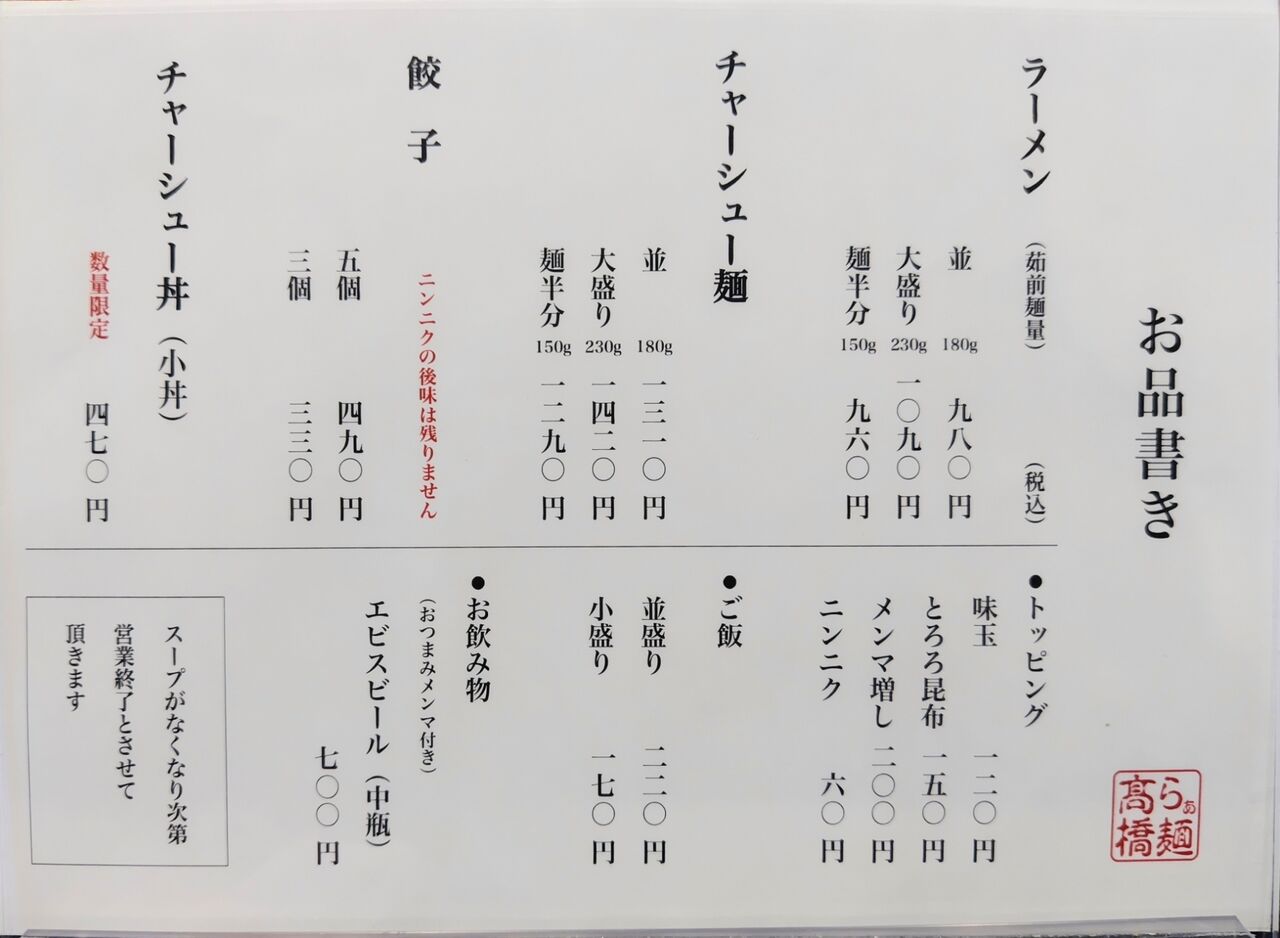 お品書き
ラーメン （茹前麺量） （税込）
並 180g 九八〇円
大盛り 230g 一〇九〇円
麺半分 150g 九六〇円
チャーシュー麺
並 180g 一三一〇円
大盛り 230g 一四二〇円
麺半分 150g 一二九〇円
餃子 ニンニクの後味は残りません
五個 四九〇円
三個 三三〇円
チャーシュー丼（小丼）
数量限定 四七〇円
●トッピング
味玉 一二〇円
とろろ昆布 一五〇円
メンマ増し 二〇〇円
ニンニク 六〇円
●ご飯
並盛り 二二〇円
小盛り 一七〇円
●お飲み物
（おつまみメンマ付き）
エビスビール（中瓶）
七〇〇円
スープがなくなり次第
営業終了とさせて
頂きます
らぁ麺
髙橋